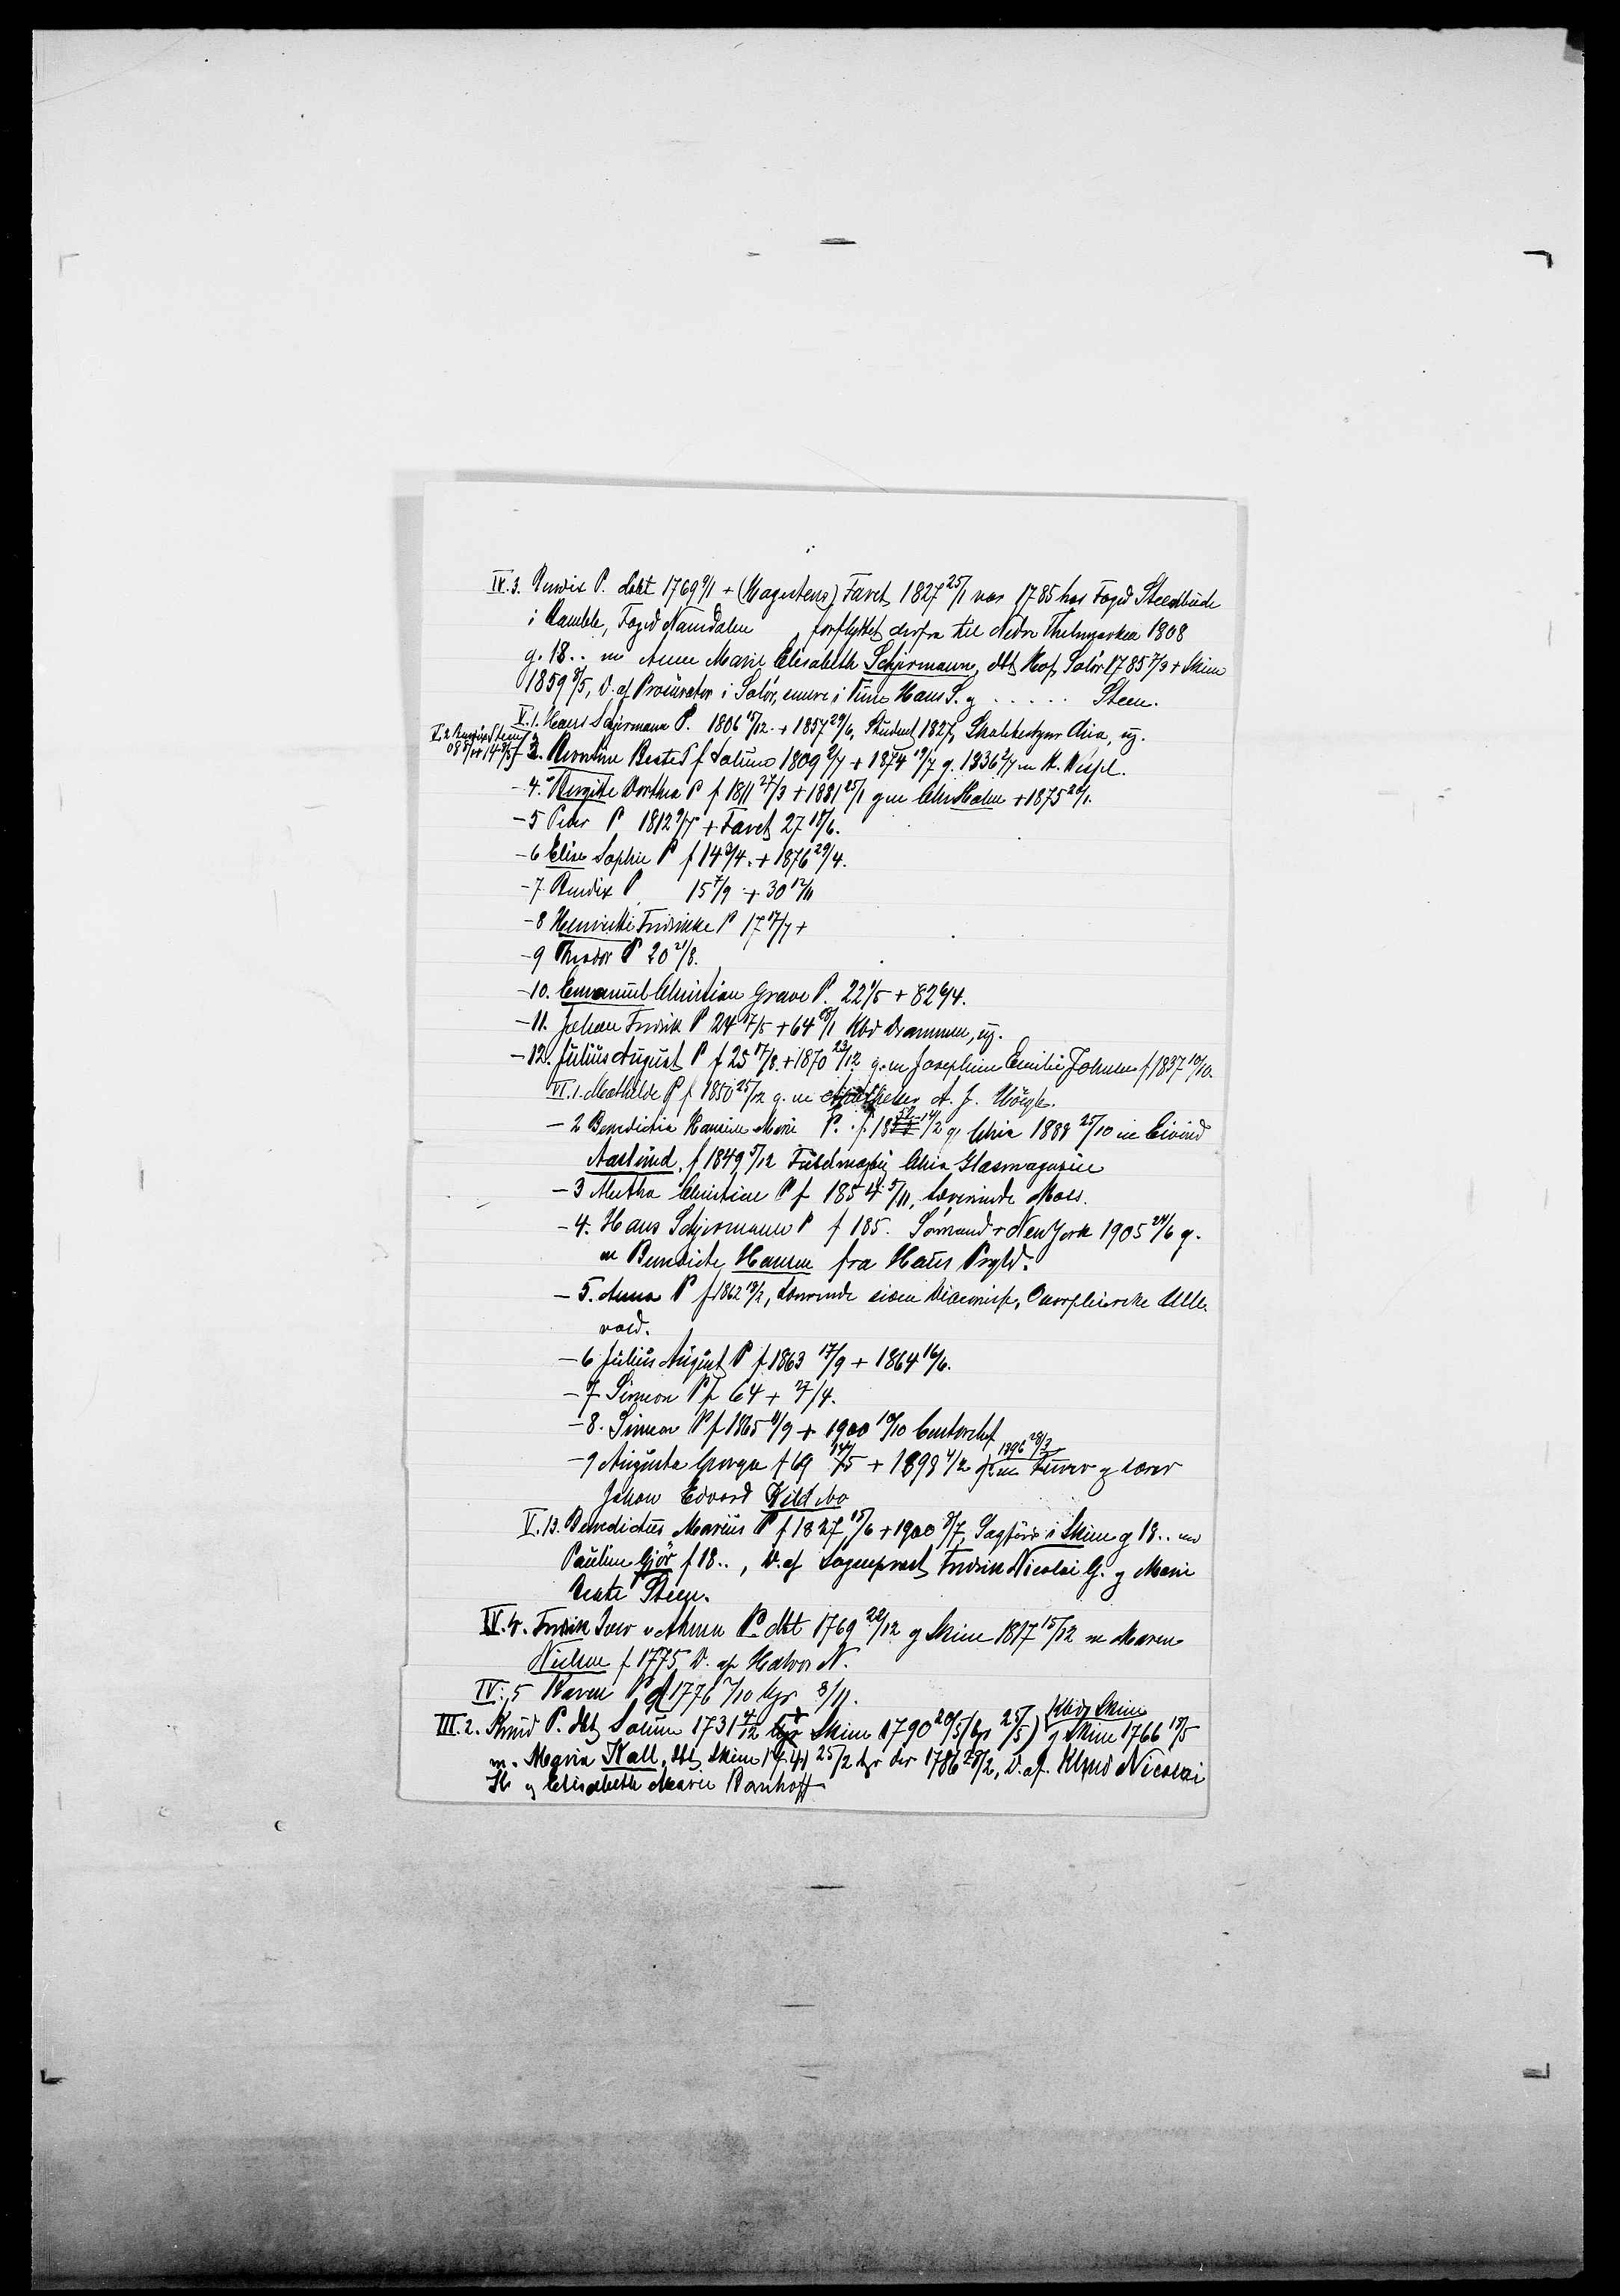 IV.3. Bendix P. døbt 1769 9/1 + (Kagestens) Faret 1827 25/1 var 1785 hos Foged Steenbude
i Bamble, Foged Namdalen forflyttet derfra til Nedre Thelemarken 1808
g. 18.. m Anne Marie Elisabeth Schjermann, dbt Hof, Solør 1785 7/3 + Skien
1859 8/5, D. af Procurator i Solør, senere i Hans S. g ...... Steen.
V.1. Hans Schjermann P. 1806 15/12 + 1857 29/6, Student 1827, Chria, ug.
V.2 Bendix Steen
3. Beate P f Solum 1809 2/7 + 1874 19/7 g. 1836 2/7 m H.
- 4. Birgitte Dorthea P f 1811 27/3 + 1881 25/1 g m Chr Holm + 1875 20/1.
- 5 Peder P 1812 9/7 + Faret 27 18/6.
- 6 Elise Sophie P f 14 3/4. + 1876 29/4.
- 7 Bendix P. 15 7/9 + 30 12/11
- 8 Henriette Fredrikke P 17 17/7 +
- 9 Theodor P 20 21/8.
- 10. Emanuel Christian Grave P. 22 1/5 + 82 6/4.
- 11. Johan Fredrik P 24 17/5 + 64 18/1 Kbd Drammen, ug.
- 12. Julius August P f 25 17/8. + 1870 23/12 g. m Josephine Emilie Johnsen f 1837 10/10.
VI.1. Mathilde P f 1850 25/12 g. m A. J.
- 2 Benedicta Hansine Marie P. f. 18 52 14/2 g. Chria 1888 25/10 m Eivind
Aaslund, f 1849 5/12 Chria Glasmagasin
- 3 Martha Christine P f 1854 5/11, Lærerinde Moss.
- 4. Hans Schjermann P f 185. Sømand + New York 1905 24/6 g.
m Benedicte Hansen fra Haus Prgld.
- 5. Anna P f 1862 19/2, Lærerinde siden Diakonisse, Ulle-
vold.
- 6 Julius August P f. 1863 17/9 + 1864 16/6.
- 7 Simon P f 64 + 27/4.
- 8. Simon P f 1865 11/9 + 1900 10/10 Contorchef
- 9 Augusta Georgea f 69 14/5 + 1898 4/2 g 1896 28/3 m g Lærer
Johan Edvard Kildebo
V.13. Benedictus Marius P f 1827 15/6 + 1900 8/7, Sagfører i Skien g 18.. m
Pauline Gjør f 18.., D. af Sogneprest Fredrik Nicolai G. g Marie
Beate Steen.
IV.4. Fredrik Iver v Ahnen P. dbt 1769 22/12 g Skien 1817 15/12 m Maren
Nielsen f 1775, D. af Halvor N.
IV: 5 Karen P dbt 1776 2/10 bgr 3/11.
III.2. Knud P. dbt Solum 1731 4/12 + Skien 1790 20/5 (bgr 25/5) Kbd i Skien g Skien 1766 15/5
m. Maria Kall, dbt Skien 1741 25/2 bgr der 1786 28/2, D. af. Knud Nicolai
K. g Elisabeth Marie